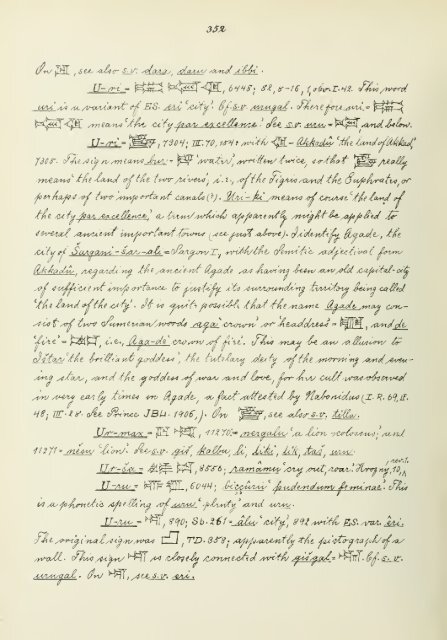 352
On , see also s.v. dara, daru and ibbi.
U-ri = , 6445; 82, 8-16, 1, obv. I. 42. This word
uri is a variant of ES. eri 'city'. Cf. s.v. urugal. Therefore uri =
means 'the city par excellence.' See s.v. uru = and below.
U-ri = , 7304; III. 70, 154: with = Akkadû 'the land of Akkad,'
7305. The sign means bur: = 'water', written twice, so that really
means 'the land of the two rivers', i.e., of the Tigris and the Euphrates, or
perhaps of two important canals (?). Uri-ki means of course 'the land of
the city par excellence,' a term which apparently might be applied to
several ancient important towns (see just above). I identify Agade, the
city of Šargani-šar-ale = Sargon I, with the Semitic adjectival form
Akkadû, regarding the ancient Agade as having been an old capital-city
of sufficient importance to justify its surrounding territory being called
'the land of the city'. It is quite possible that the name Agade may con-
sist of two Sumerian words aga 'crown' or 'headdress' = , and de
'fire' = , i.e., Aga-de 'crown of fire'. This may be an allusion to
Ištar 'the brilliant goddess', the tutelary deity of the morning and even-
ing star, and the goddess of war and love, for her cult was observed
in very early times in Agade, a fact attested by Nabonidus (I. R. 69, II.
48; III. 28. See Prince JBL. 1906,). On , see also s.v. tilla.
Ur-max = , 11270: = nergalu 'a lion-colossus', and
11271 = nêšu 'lion'. See s.v. gil, kalbu, li, liki, lik, taš, urn.
Ur-ša = , 8556; ramâmu 'cry out, roar.' Hrozny,
U-ru = , 6044; biççûru 'pudendum feminae.' This
is a phonetic spelling of uru 'plenty' and urn.
U-ru = , 890; Sb. 261 = âlu 'city', 892 with ES. var. êri.
The original sign was , TD. 353; apparently the pictograph of a
wall. This sign is closely connected with gišgal = . Cf. s.v.
urugal. On , see s.v. eri.